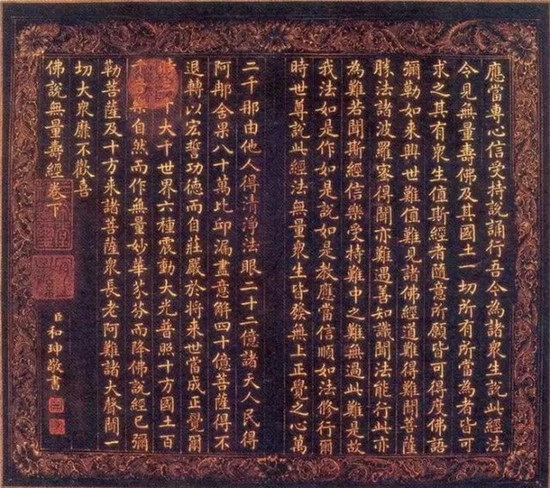 應當專心信受持說誦行吾今為諸眾生說此經法
今見無量壽佛及其國土一切所有所當為者皆可
求之其有眾生值斯經者隨意所願皆可得度佛語
彌勒如來興世難值難見諸佛經道難得難聞菩薩
勝法諸波羅蜜得聞亦難遇善知識聞法能行此亦
為難若聞斯經信樂受持難中之難無過此難是故
我法如是作如是說如是教應當信順如法修行爾
時世尊說此經法無量眾生皆發無上正覺之心萬
二千那由他人得清淨法眼二十二億諸天人民得
阿那含果八十萬比丘漏盡意解四十億菩薩得不
退轉以宏誓功德而自莊嚴於將來世當成正覺爾
大千世界六種震動大光普照十方國土百
自然而作無量妙華芬芬而降佛說經已彌
勒菩薩及十方來諸菩薩眾長老阿難諸大聲聞一
切大眾靡不歡喜
佛說無量壽經卷下
臣和珅敬書